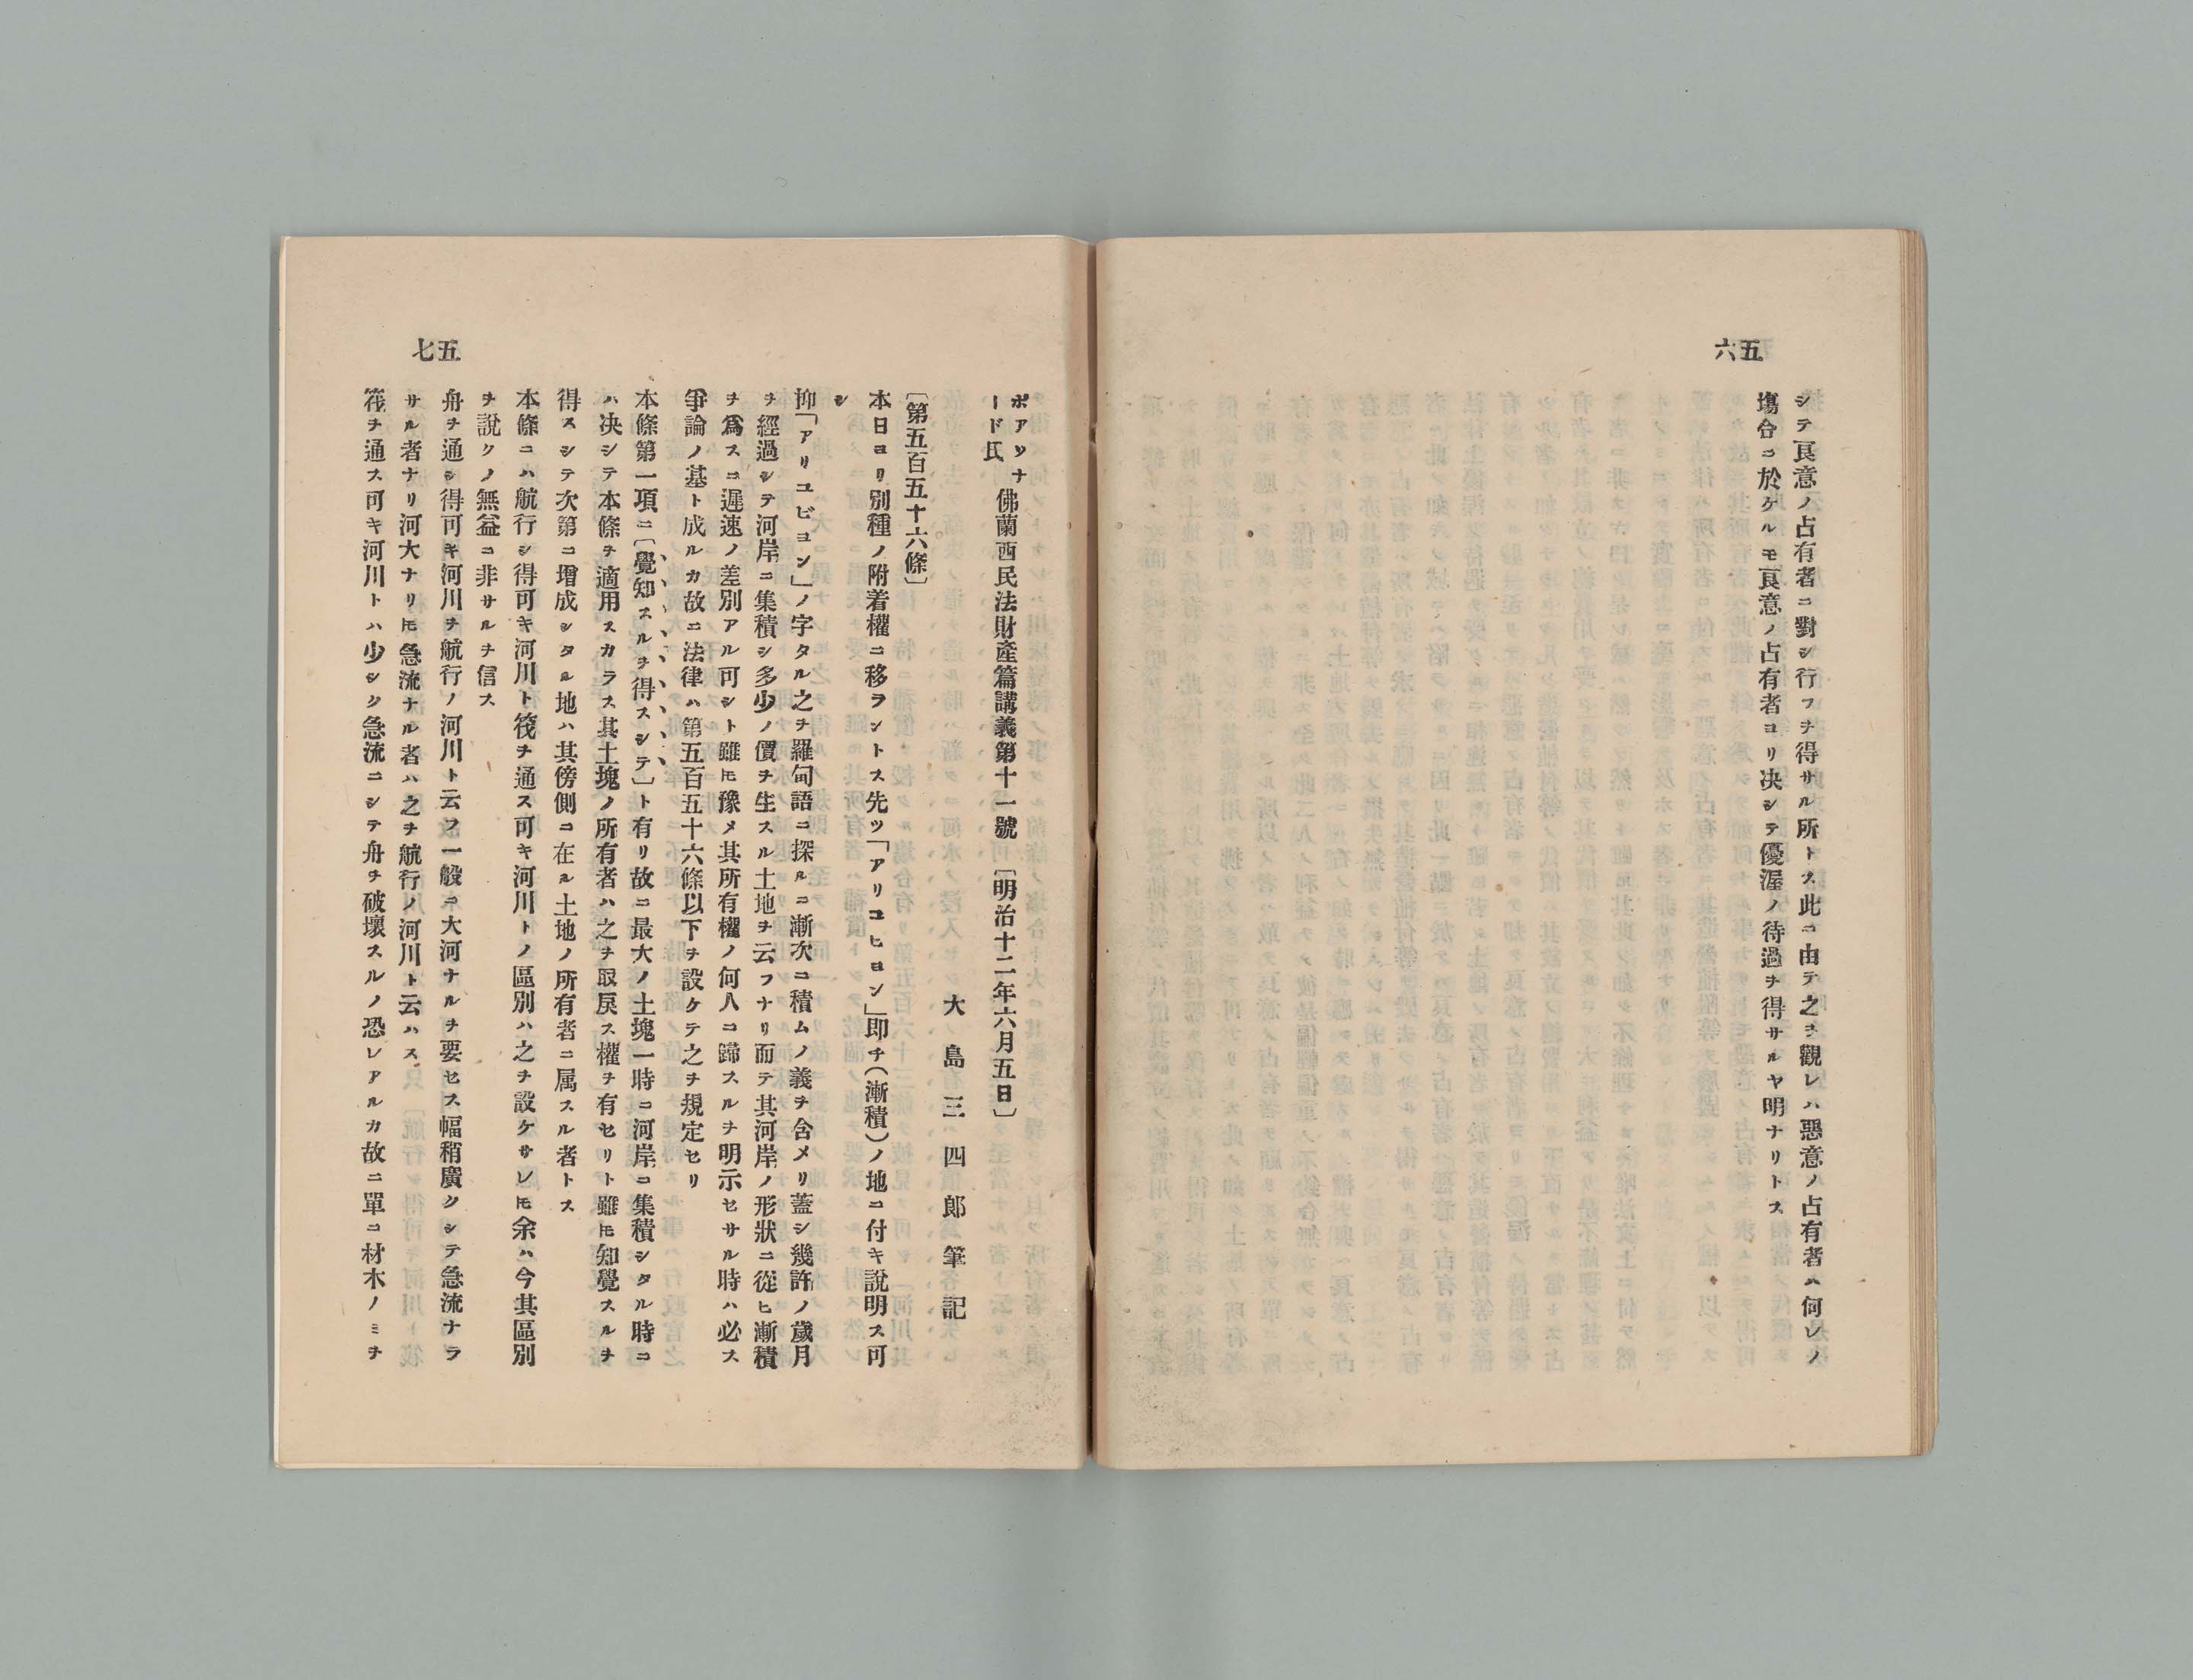 五六
シテ良意ノ占有者ニ對シ行フヲ得サル所トス此ニ由テ之ヲ觀レハ惡意ノ占有者ハ何レノ
塲合ニ於ケルモ良意ノ占有者ヨリ决シテ優渥ノ待過ヲ得サルヤ明ナリトス
五七
ボアソナード氏 佛蘭西民法財產篇講義第十一號〔明治十二年六月五日〕
大島三四郎筆記
〔第五百五十六條〕
本日ヨリ別種ノ附着權ニ移ラントス先ツ「アリユヒヨン」即チ(漸積)ノ地ニ付キ說明ス可
シ
抑「アリユビヨン」ノ字タル之ヲ羅甸語ニ探ルニ漸次ニ積ムノ義ヲ含メリ蓋シ幾許ノ歲月
ヲ經過シテ河岸ニ集積シ多少ノ價ヲ生スル土地ヲ云フナリ而テ其河岸ノ形狀ニ從ヒ漸積
ヲ爲スニ遲速ノ差別アル可シト雖𪜈豫メ其所有權ノ何人ニ歸スルヲ明示セサル時ハ必ス
爭論ノ基ト成ルカ故ニ法律ハ第五百五十六條以下ヲ設ケテ之ヲ規定セリ
本條第一項ニ〔覺知スルヲ得スシテ〕ト有リ故ニ最大ノ土塊一時ニ河岸ニ集積シタル時ニ
ハ决シテ本條ヲ適用スカラス其土塊ノ所有者ハ之ヲ取戾ス權ヲ有セリト雖𪜈知覺スルヲ
得スシテ次第ニ增成シタル地ハ其傍側ニ在ル土地ノ所有者ニ属スル者トス
本條ニハ航行シ得可キ河川ト筏ヲ通ス可キ河川トノ區別ハ之ヲ設ケサレ𪜈余ハ今其區別
ヲ說クノ無益ニ非サルヲ信ス
舟ヲ通シ得可キ河川ヲ航行ノ河川ト云フ一般ニ大河ナルヲ要セス幅稍廣クシテ急流ナラ
サル者ナリ河大ナリ𪜈急流ナル者ハ之ヲ航行ノ河川ト云ハス
筏ヲ通ス可キ河川トハ少シク急流ニシテ舟ヲ破壞スルノ恐レアルカ故ニ單ニ材木ノミヲ